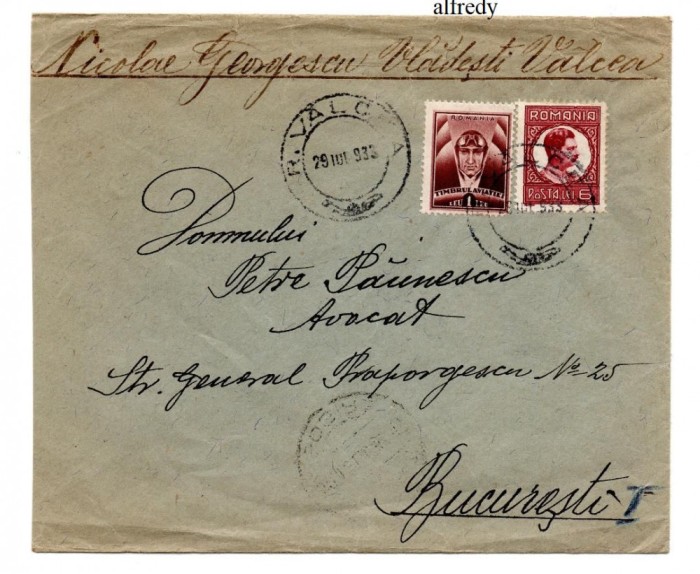 alfredy
Nicolae Georgescu Vlădești Vâlcea
R. VÂLCEA
29 IUL 933
ROMANIA
TIMBRUL AVIAȚIEI
1 LEU
ROMANIA
POSTA LEI 6
IUL 933
Domnului
Petre Păunescu
Avocat
Str. General Praporgescu No 25
București I